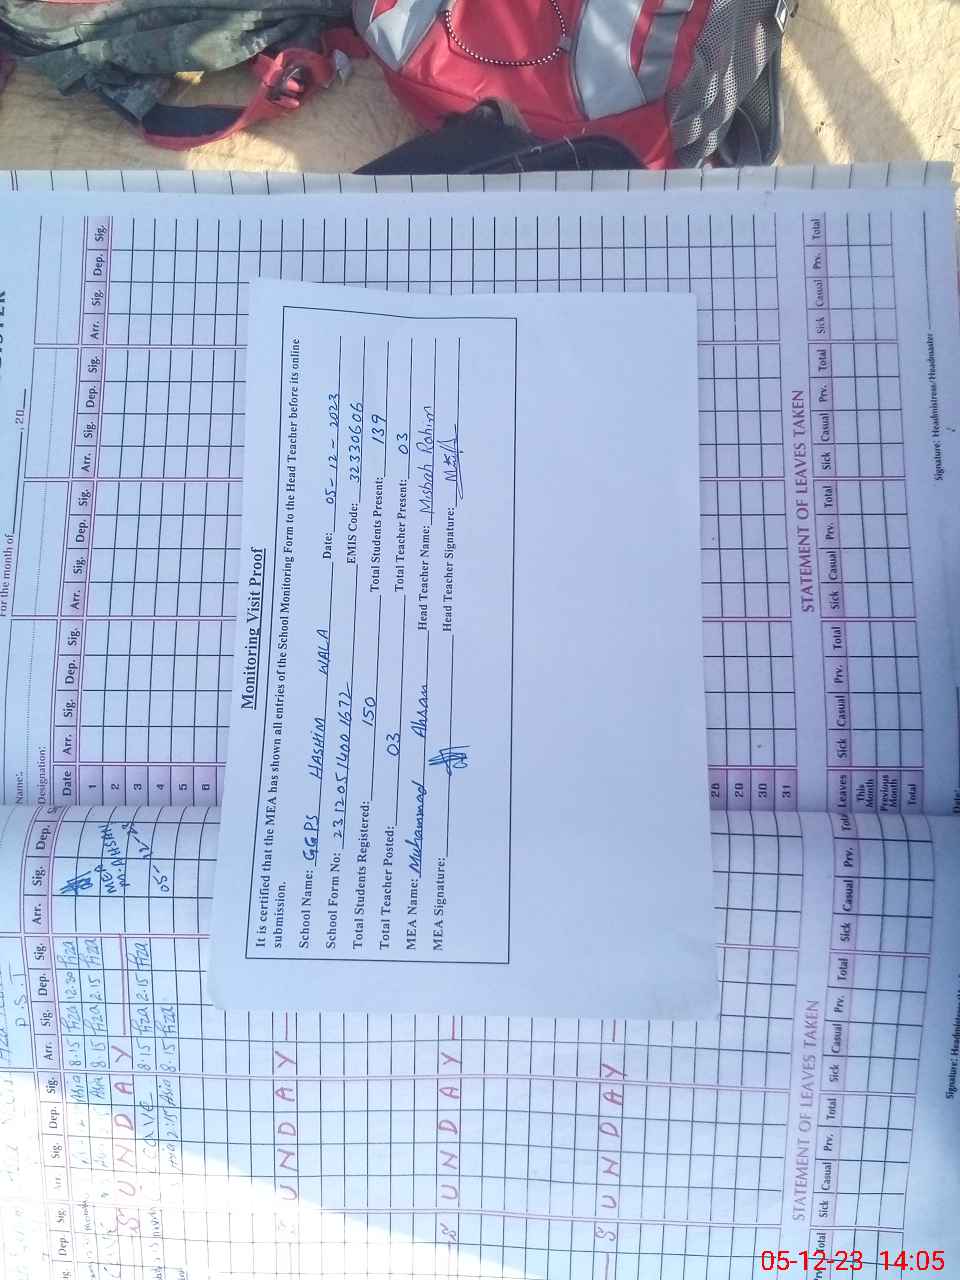 Monitoring Visit Proof
It is certified that the MEA has shown all entries of the School Monitoring Form to the Head Teacher before its online
submission.
School Name: GGPS HASHIM WALA Date: 05-12-2023
School Form No: 2312051400 1672 EMIS Code: 32330606
Total Students Registered: 150 Total Students Present: 139
Total Teacher Posted: 03 Total Teacher Present: 03
MEA Name: Muhammad Ahsan Head Teacher Name: Misbah Rahim
MEA Signature: Head Teacher Signature:
For the month of , 20
Name:
Designation:
Date Arr. Sig. Dep. Sig. Arr. Sig. Dep. Sig. Arr. Sig. Dep. Sig. Arr. Sig. Dep. Sig.
1
2
3
4
5
6
28
29
30
31
STATEMENT OF LEAVES TAKEN
Leaves Sick Casual Prv. Total Sick Casual Prv. Total Sick Casual Prv. Total Sick Casual Prv. Total
This Month
Previous Month
Total
Signature: Headmistress/Headmaster
P.S.T
Dep. Sig. Arr. Sig. Dep. Sig. Arr. Sig. Dep. Sig. Arr. Sig. Dep.
8.15 Fiza 12.30 Fiza
Asia 8.15 Fiza 2.15 Fiza
SUNDAY
8.15 Fiza 2.15 Fiza
2:15 Asia 8.15 Fiza
MEA
M. AHSAN
05-12-23
SUNDAY
SUNDAY
SUNDAY
STATEMENT OF LEAVES TAKEN
Total Sick Casual Prv. Total Sick Casual Prv. Total Sick Casual Prv.
05-12-23 14:05